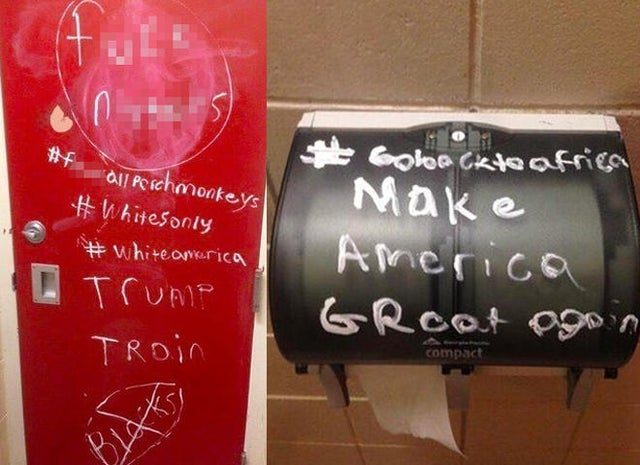 #f all porchmonkeys
# Whitesonly
# whiteamerica
TRUMP
TRain
Blacks!
# Gobacktoafrica
Make
America
GReat again
Georgia-Pacific
compact